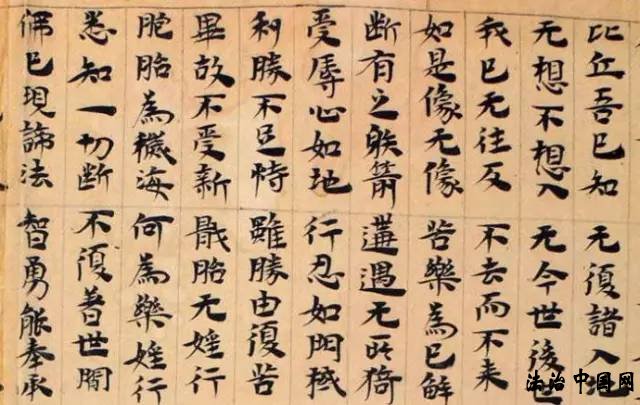 比丘吾已知 无復諸入地
无想不想入 无今世後世
我已无往反 不去而不来
如是像无像 苦樂為已解
断有之箭 遘遇无所猗
受辱心如地 行忍如門
利勝不足恃 雖勝由復苦
畢故不受新 厭胎无婬行
胞胎為穢海 何為樂婬行
悉知一切断 不復著世間
佛已現諦法 智勇能奉承
法治中国网